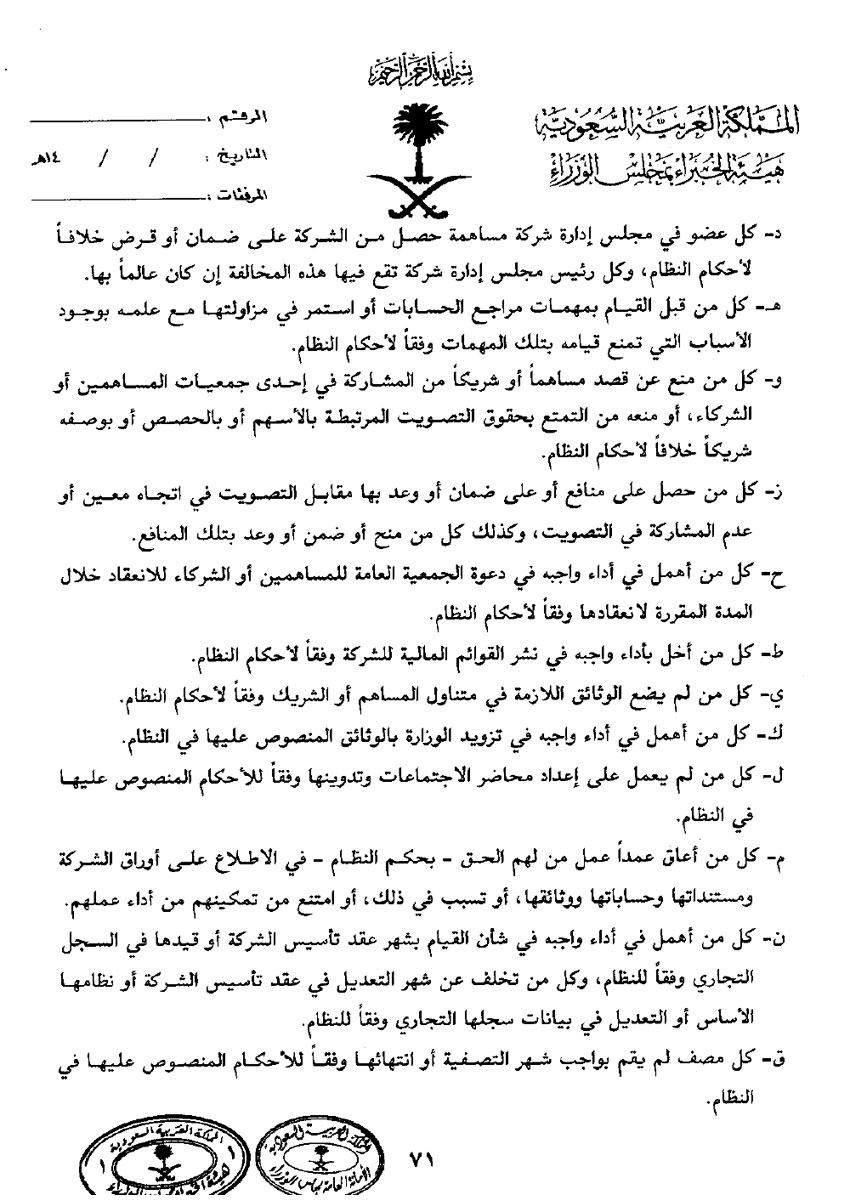 بسم الله الرحمن الرحيم
المملكة العربية السعودية
هيئة الخبراء بمجلس الوزراء
الرقم :
التاريخ : / / ١٤هـ
المرفقات :
د- كل عضو في مجلس إدارة شركة مساهمة حصل من الشركة على ضمان أو قرض خلافاً
لأحكام النظام، وكل رئيس مجلس إدارة شركة تقع فيها هذه المخالفة إن كان عالماً بها.
هـ- كل من قبل القيام بمهمات مراجع الحسابات أو استمر في مزاولتها مع علمه بوجود
الأسباب التي تمنع قيامه بتلك المهمات وفقاً لأحكام النظام.
و- كل من منع عن قصد مساهماً أو شريكاً من المشاركة في إحدى جمعيات المساهمين أو
الشركاء، أو منعه من التمتع بحقوق التصويت المرتبطة بالأسهم أو بالحصص أو بوصفه
شريكاً خلافاً لأحكام النظام.
ز- كل من حصل على منافع أو على ضمان أو وعد بها مقابل التصويت في اتجاه معين أو
عدم المشاركة في التصويت، وكذلك كل من منح أو ضمن أو وعد بتلك المنافع.
ح- كل من أهمل في أداء واجبه في دعوة الجمعية العامة للمساهمين أو الشركاء للانعقاد خلال
المدة المقررة لانعقادها وفقاً لأحكام النظام.
ط- كل من أخل بأداء واجبه في نشر القوائم المالية للشركة وفقاً لأحكام النظام.
ي- كل من لم يضع الوثائق اللازمة في متناول المساهم أو الشريك وفقاً لأحكام النظام.
ك- كل من أهمل في أداء واجبه في تزويد الوزارة بالوثائق المنصوص عليها في النظام.
ل- كل من لم يعمل على إعداد محاضر الاجتماعات وتدوينها وفقاً للأحكام المنصوص عليها
في النظام.
م- كل من أعاق عمداً عمل من لهم الحق - بحكم النظام - في الاطلاع على أوراق الشركة
ومستنداتها وحساباتها ووثائقها، أو تسبب في ذلك، أو امتنع من تمكينهم من أداء عملهم.
ن- كل من أهمل في أداء واجبه في شأن القيام بشهر عقد تأسيس الشركة أو قيدها في السجل
التجاري وفقاً للنظام، وكل من تخلف عن شهر التعديل في عقد تأسيس الشركة أو نظامها
الأساس أو التعديل في بيانات سجلها التجاري وفقاً للنظام.
ق- كل مصف لم يقم بواجب شهر التصفية أو انتهائها وفقاً للأحكام المنصوص عليها في
النظام.
٧١
المملكة العربية السعودية
الأمانة العامة لمجلس الوزراء
المملكة العربية السعودية